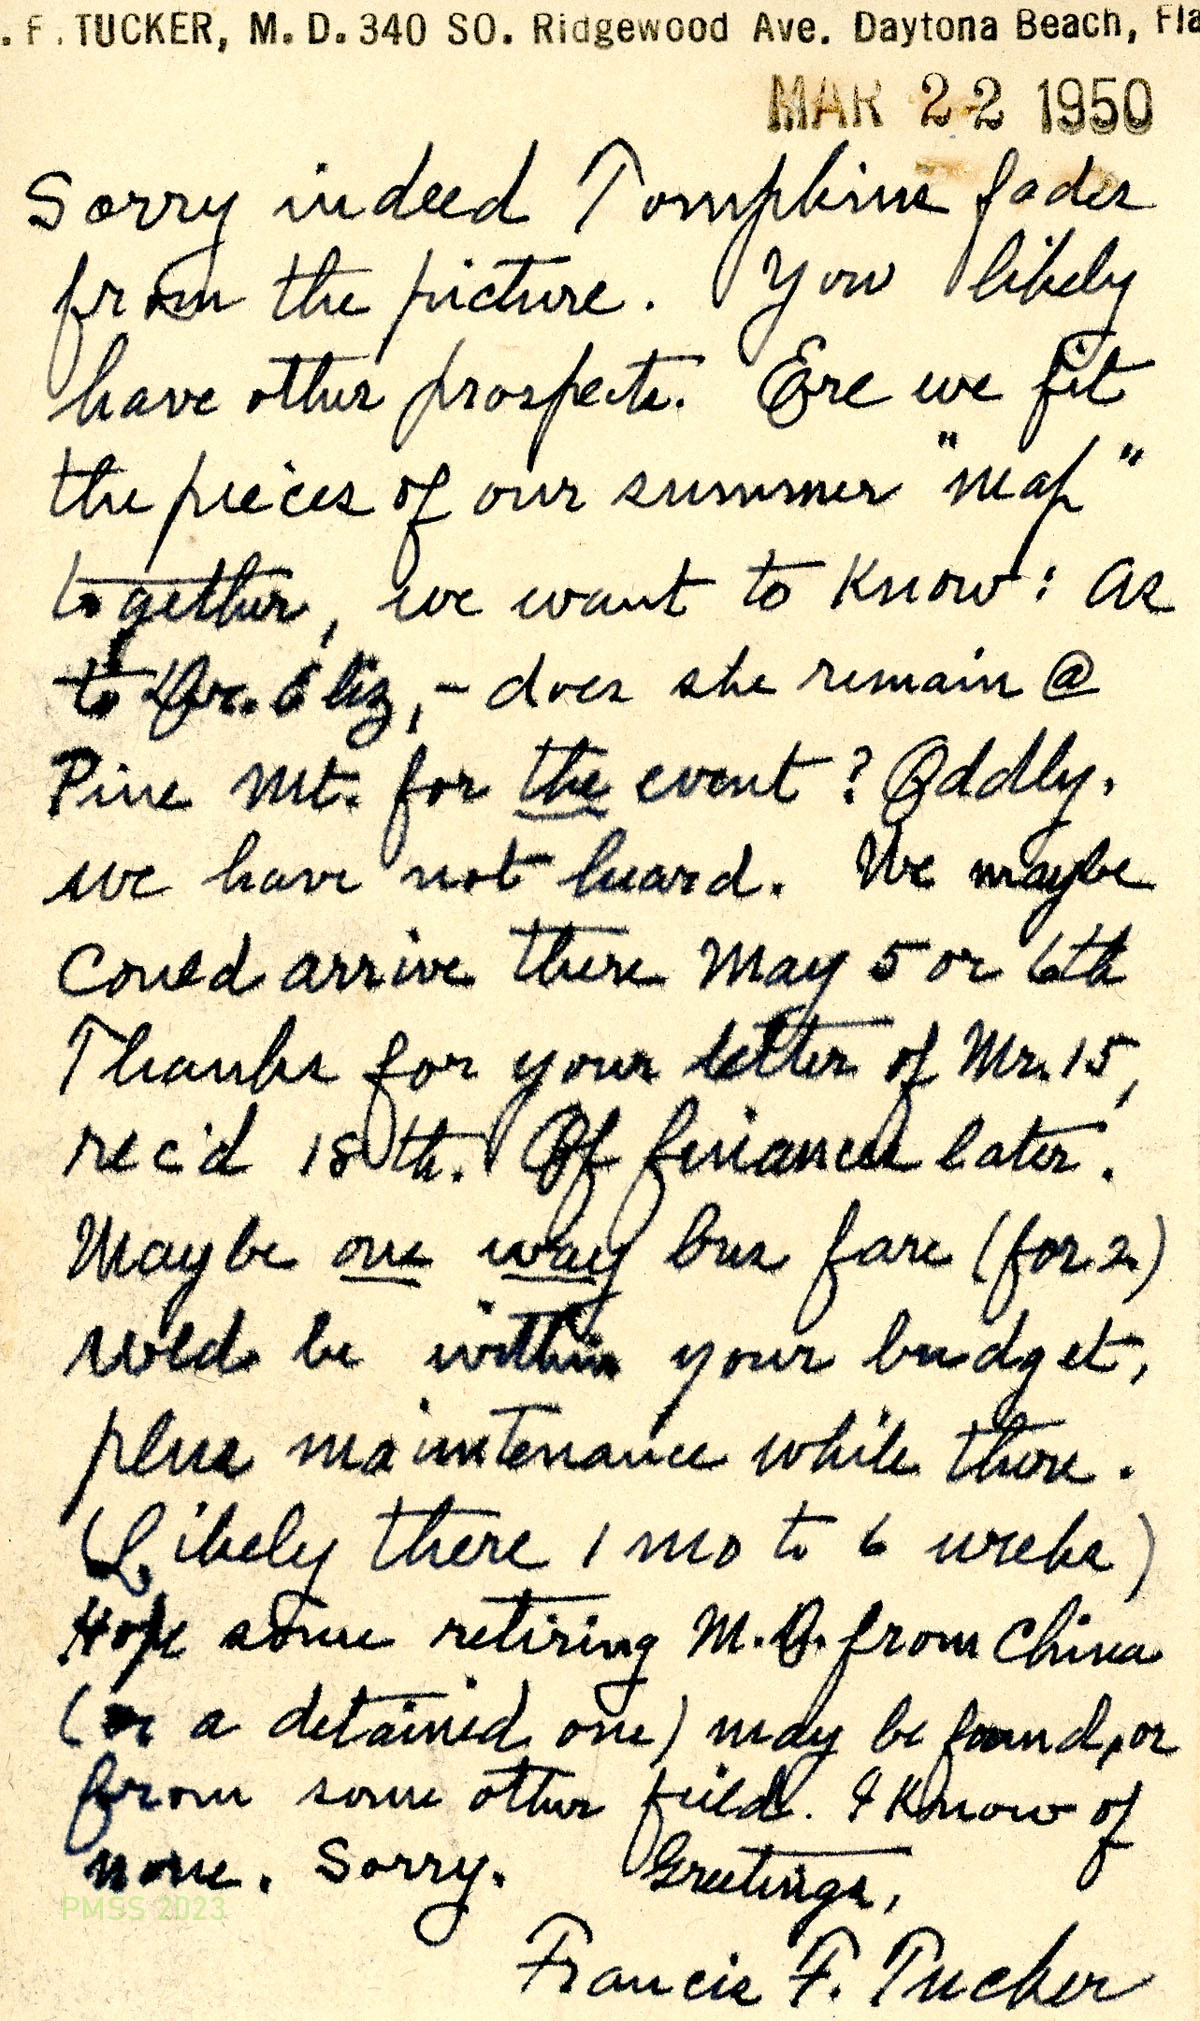 . F. TUCKER, M. D. 340 SO. Ridgewood Ave. Daytona Beach, Fla
MAR 22 1950
Sorry indeed Tompkins fades
from the picture. You likely
have other prospects. Ere we fit
the pieces of our summer "map"
together, we want to know: As
to Dr. Eliz, - does she remain @
Pine Mt. for the event? Oddly,
we have not heard. We maybe
Could arrive there May 5 or 6th
Thanks for your letter of Mr. 15,
rec'd 18th. Of finances later.
Maybe one way bus fare (for 2)
wold be within your budget,
plus maintenance while there.
(Likely there 1 mo to 6 weeks)
Hope some retiring M.D. from China
(or a detained one) may be found, or
from some other field. I know of
none. Sorry. Greetings,
PMSS 2023
Francis F. Tucker